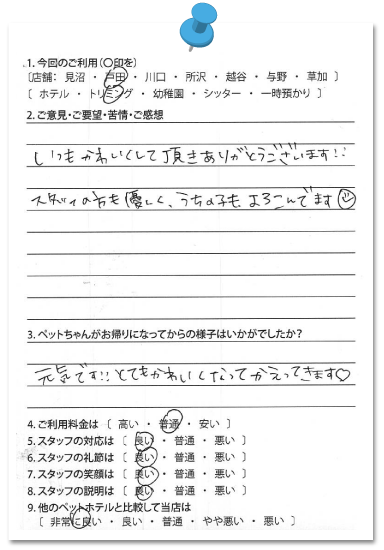 1. 今回のご利用(〇印を)
〔店舗： 見沼 ・ 戸田 ・ 川口 ・ 所沢 ・ 越谷 ・ 与野 ・ 草加 〕
〔 ホテル ・ トリミング ・ 幼稚園 ・ シッター ・ 一時預かり 〕
2. ご意見・ご要望・苦情・ご感想
いつもかわいくして頂きありがとうございます!!
スタッフの方も優しく、うちの子も、よろこんでます☺
3. ペットちゃんがお帰りになってからの様子はいかがでしたか？
元気です!! とてもかわいくなってかえってきます♡
4. ご利用料金は 〔 高い ・ 普通 ・ 安い 〕
5. スタッフの対応は 〔 良い ・ 普通 ・ 悪い 〕
6. スタッフの礼節は 〔 良い ・ 普通 ・ 悪い 〕
7. スタッフの笑顔は 〔 良い ・ 普通 ・ 悪い 〕
8. スタッフの説明は 〔 良い ・ 普通 ・ 悪い 〕
9. 他のペットホテルと比較して当店は
〔 非常に良い ・ 良い ・ 普通 ・ やや悪い ・ 悪い 〕